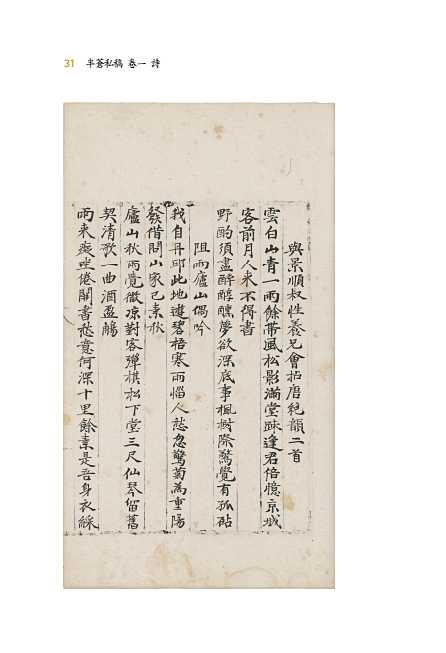 31 半蒼私稿 卷一 詩
與景順叔性義兄會拈唐絶韻二首
雲白山青一雨餘帶風松影滿堂踈逢君倍憶京城
客前月人來不得書
野酌須盡醉醇醲夢欲深底事楓樹際驚覺有孤砧
阻雨廬山偶吟
我自丹邱此地遊碧梧寒雨惱人愁忽驚菊為重陽
發借問山家已素秋
廬山秋雨覺微凉對客彈棋松下堂三尺仙琴留舊
契清歌一曲酒盈觴
雨來疲坐倦開書愁意何深十里餘素是吾身衣綵